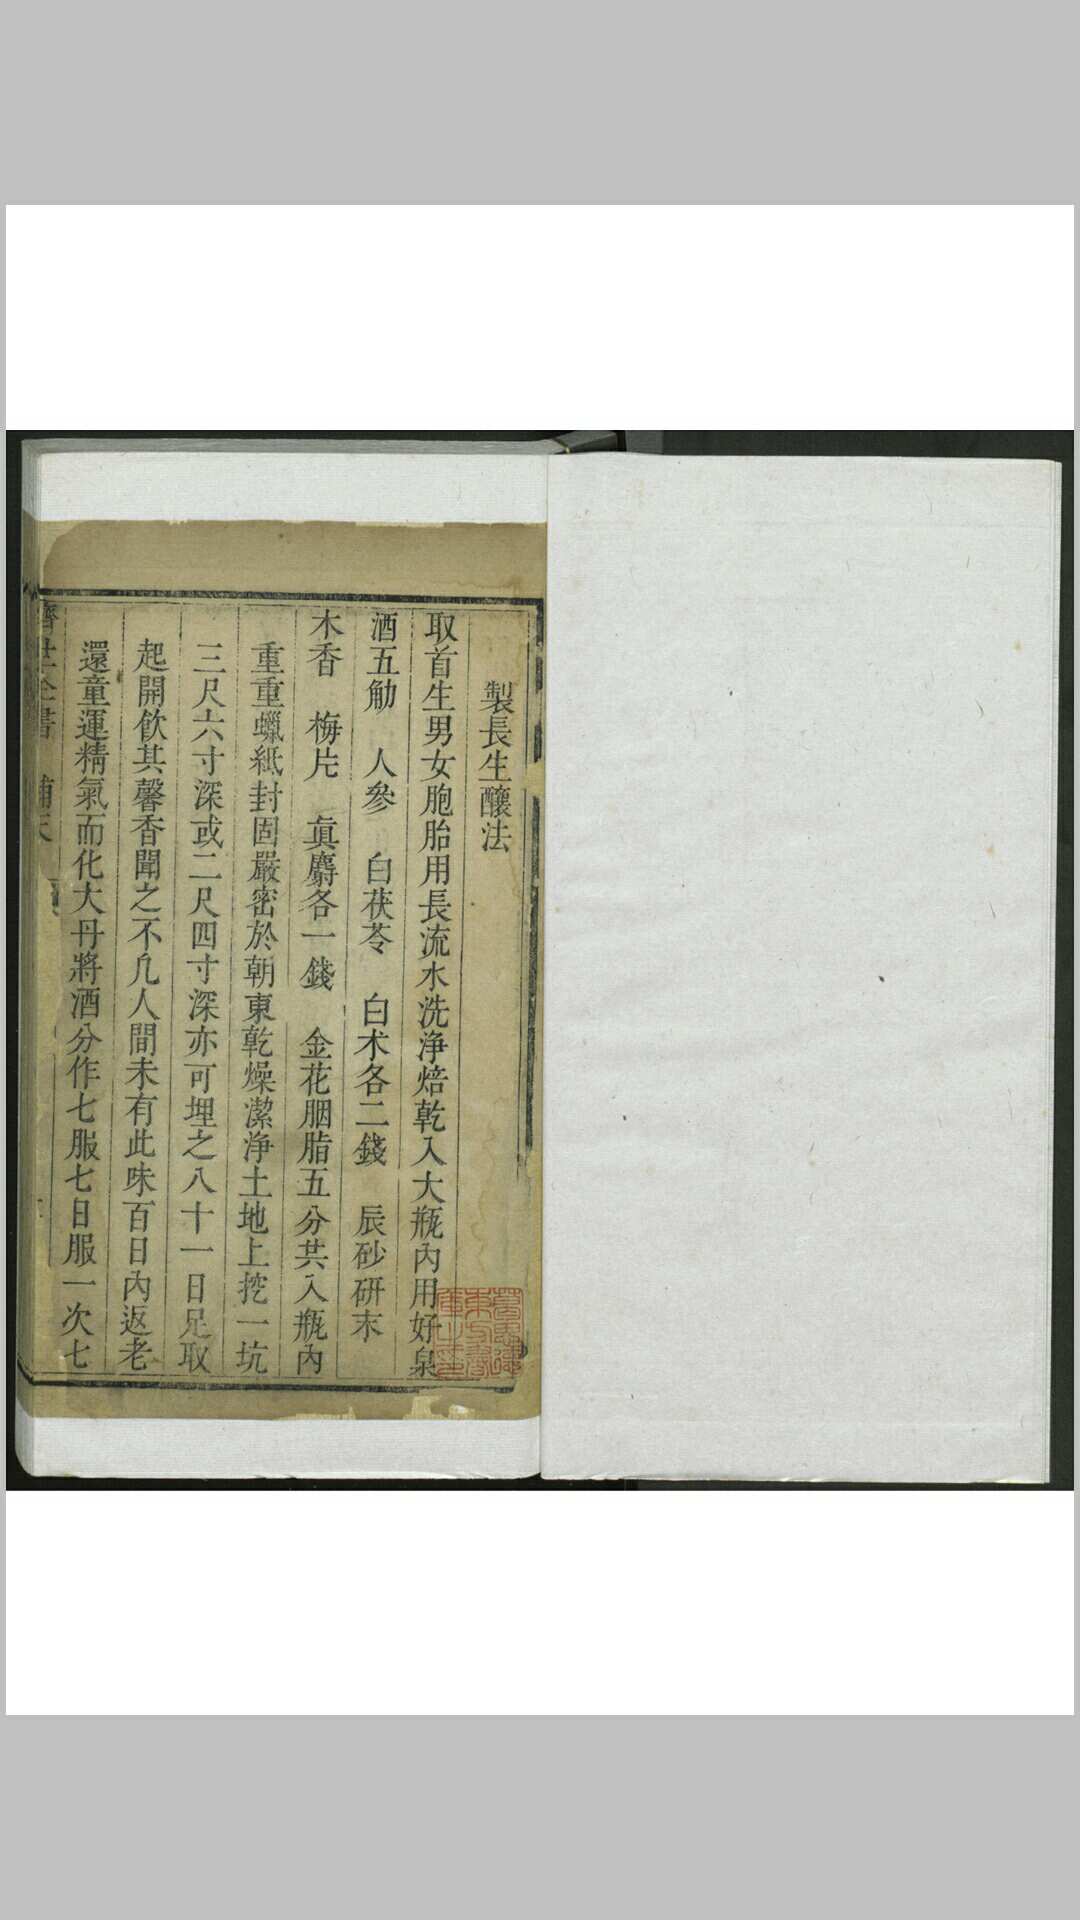 製長生釀法
取首生男女胞胎用長流水洗淨焙乾入大瓶內用好泉
酒五觔　人參　白茯苓　白朮各二錢　辰砂研末
木香　梅片　眞麝各一錢　金花胭脂五分共入瓶內
重重蠟紙封固嚴密於朝東乾燥潔淨土地上挖一坑
三尺六寸深或二尺四寸深亦可埋之八十一日足取
起開飲其馨香聞之不凡人間未有此味百日內返老
還童運精氣而化大丹將酒分作七服七日服一次七
濟世全書